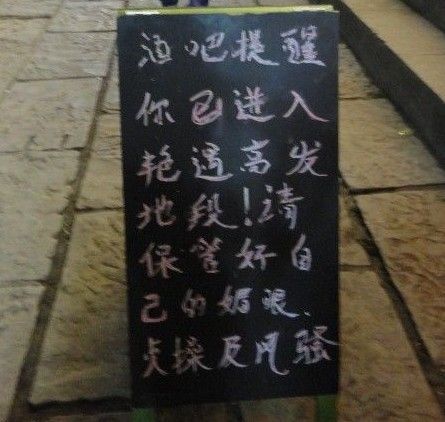 酒吧提醒
你已进入
艳遇高发
地段!请
保管好自
己的媚眼、
贞操及风骚